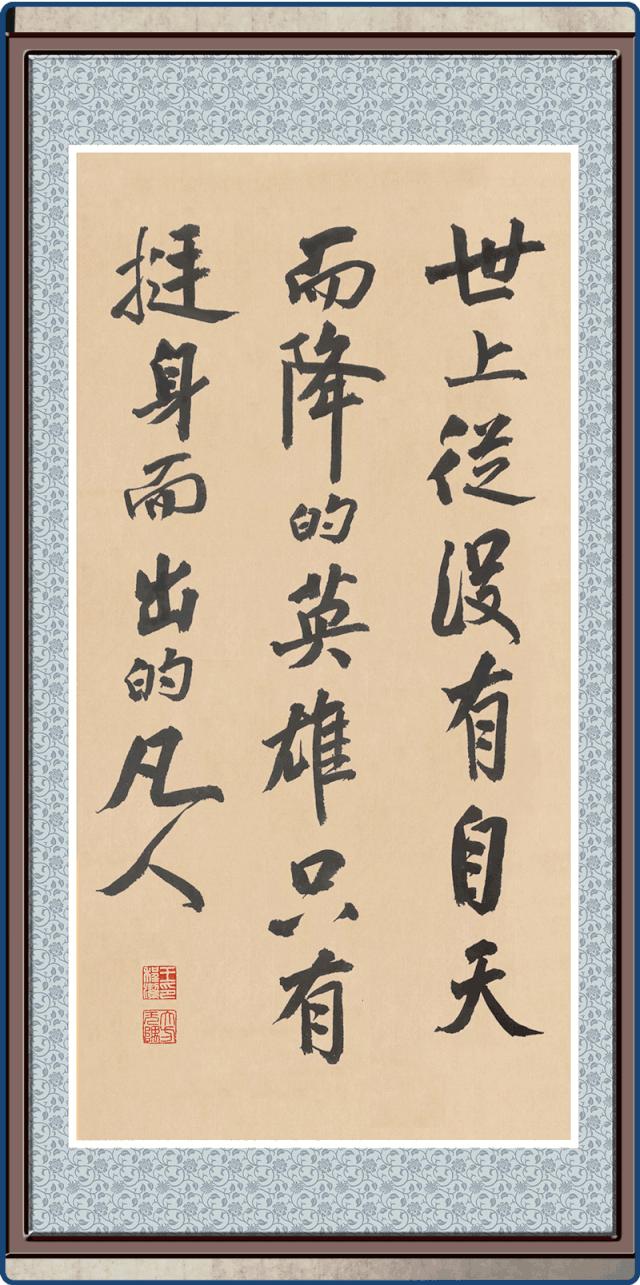 世上從没有自天
而降的英雄只有
挺身而出的凡人